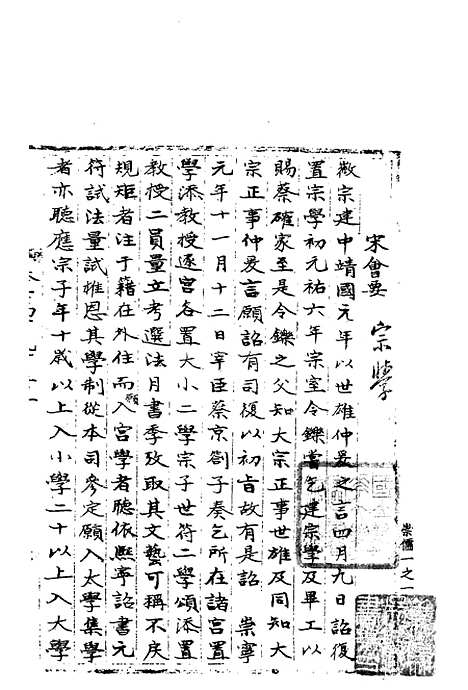 宋會要
宗學
徽宗建中靖國元年以世雄仲爰之言四月九日詔復
置宗學初元祐六年宗室令鑠嘗乞建宗學及畢工以
賜蔡確家至是令鑠之父知大宗正事世雄及同知大
宗正事仲爰言願詔有司復以初旨故有是詔 崇寧
元年十一月十二日宰臣蔡京劄子奏乞所在諸宮置
學添教授逐宮各置大小二學宗子世符二學頌添置
教授二員量立考選法月書季攷取其文藝可稱不戾
規矩者注于籍在外住而願入宮學者聽依熙寧詔書元
符試法量試推恩其學制從本司參定願入太學集學
者亦聽應宗子年十歲以上入小學二十以上入大學
崇儒一之一